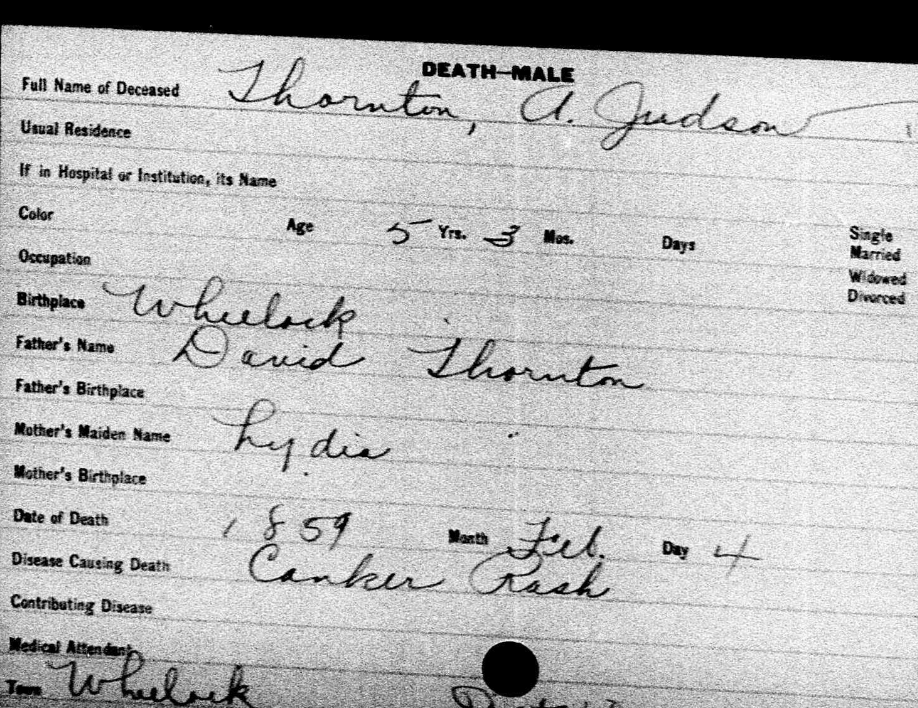 DEATH—MALE
Full Name of Deceased Thornton, A. Judson
Usual Residence
If in Hospital or Institution, its Name
Color Age 5 Yrs. 3 Mos. Days Single
Married
Occupation Widowed
Divorced
Birthplace Wheelock
Father's Name David Thornton
Father's Birthplace
Mother's Maiden Name Lydia
Mother's Birthplace
Date of Death 1859 Month Feb. Day 4
Disease Causing Death Canker Rash
Contributing Disease
Medical Attendant
Town Wheelock